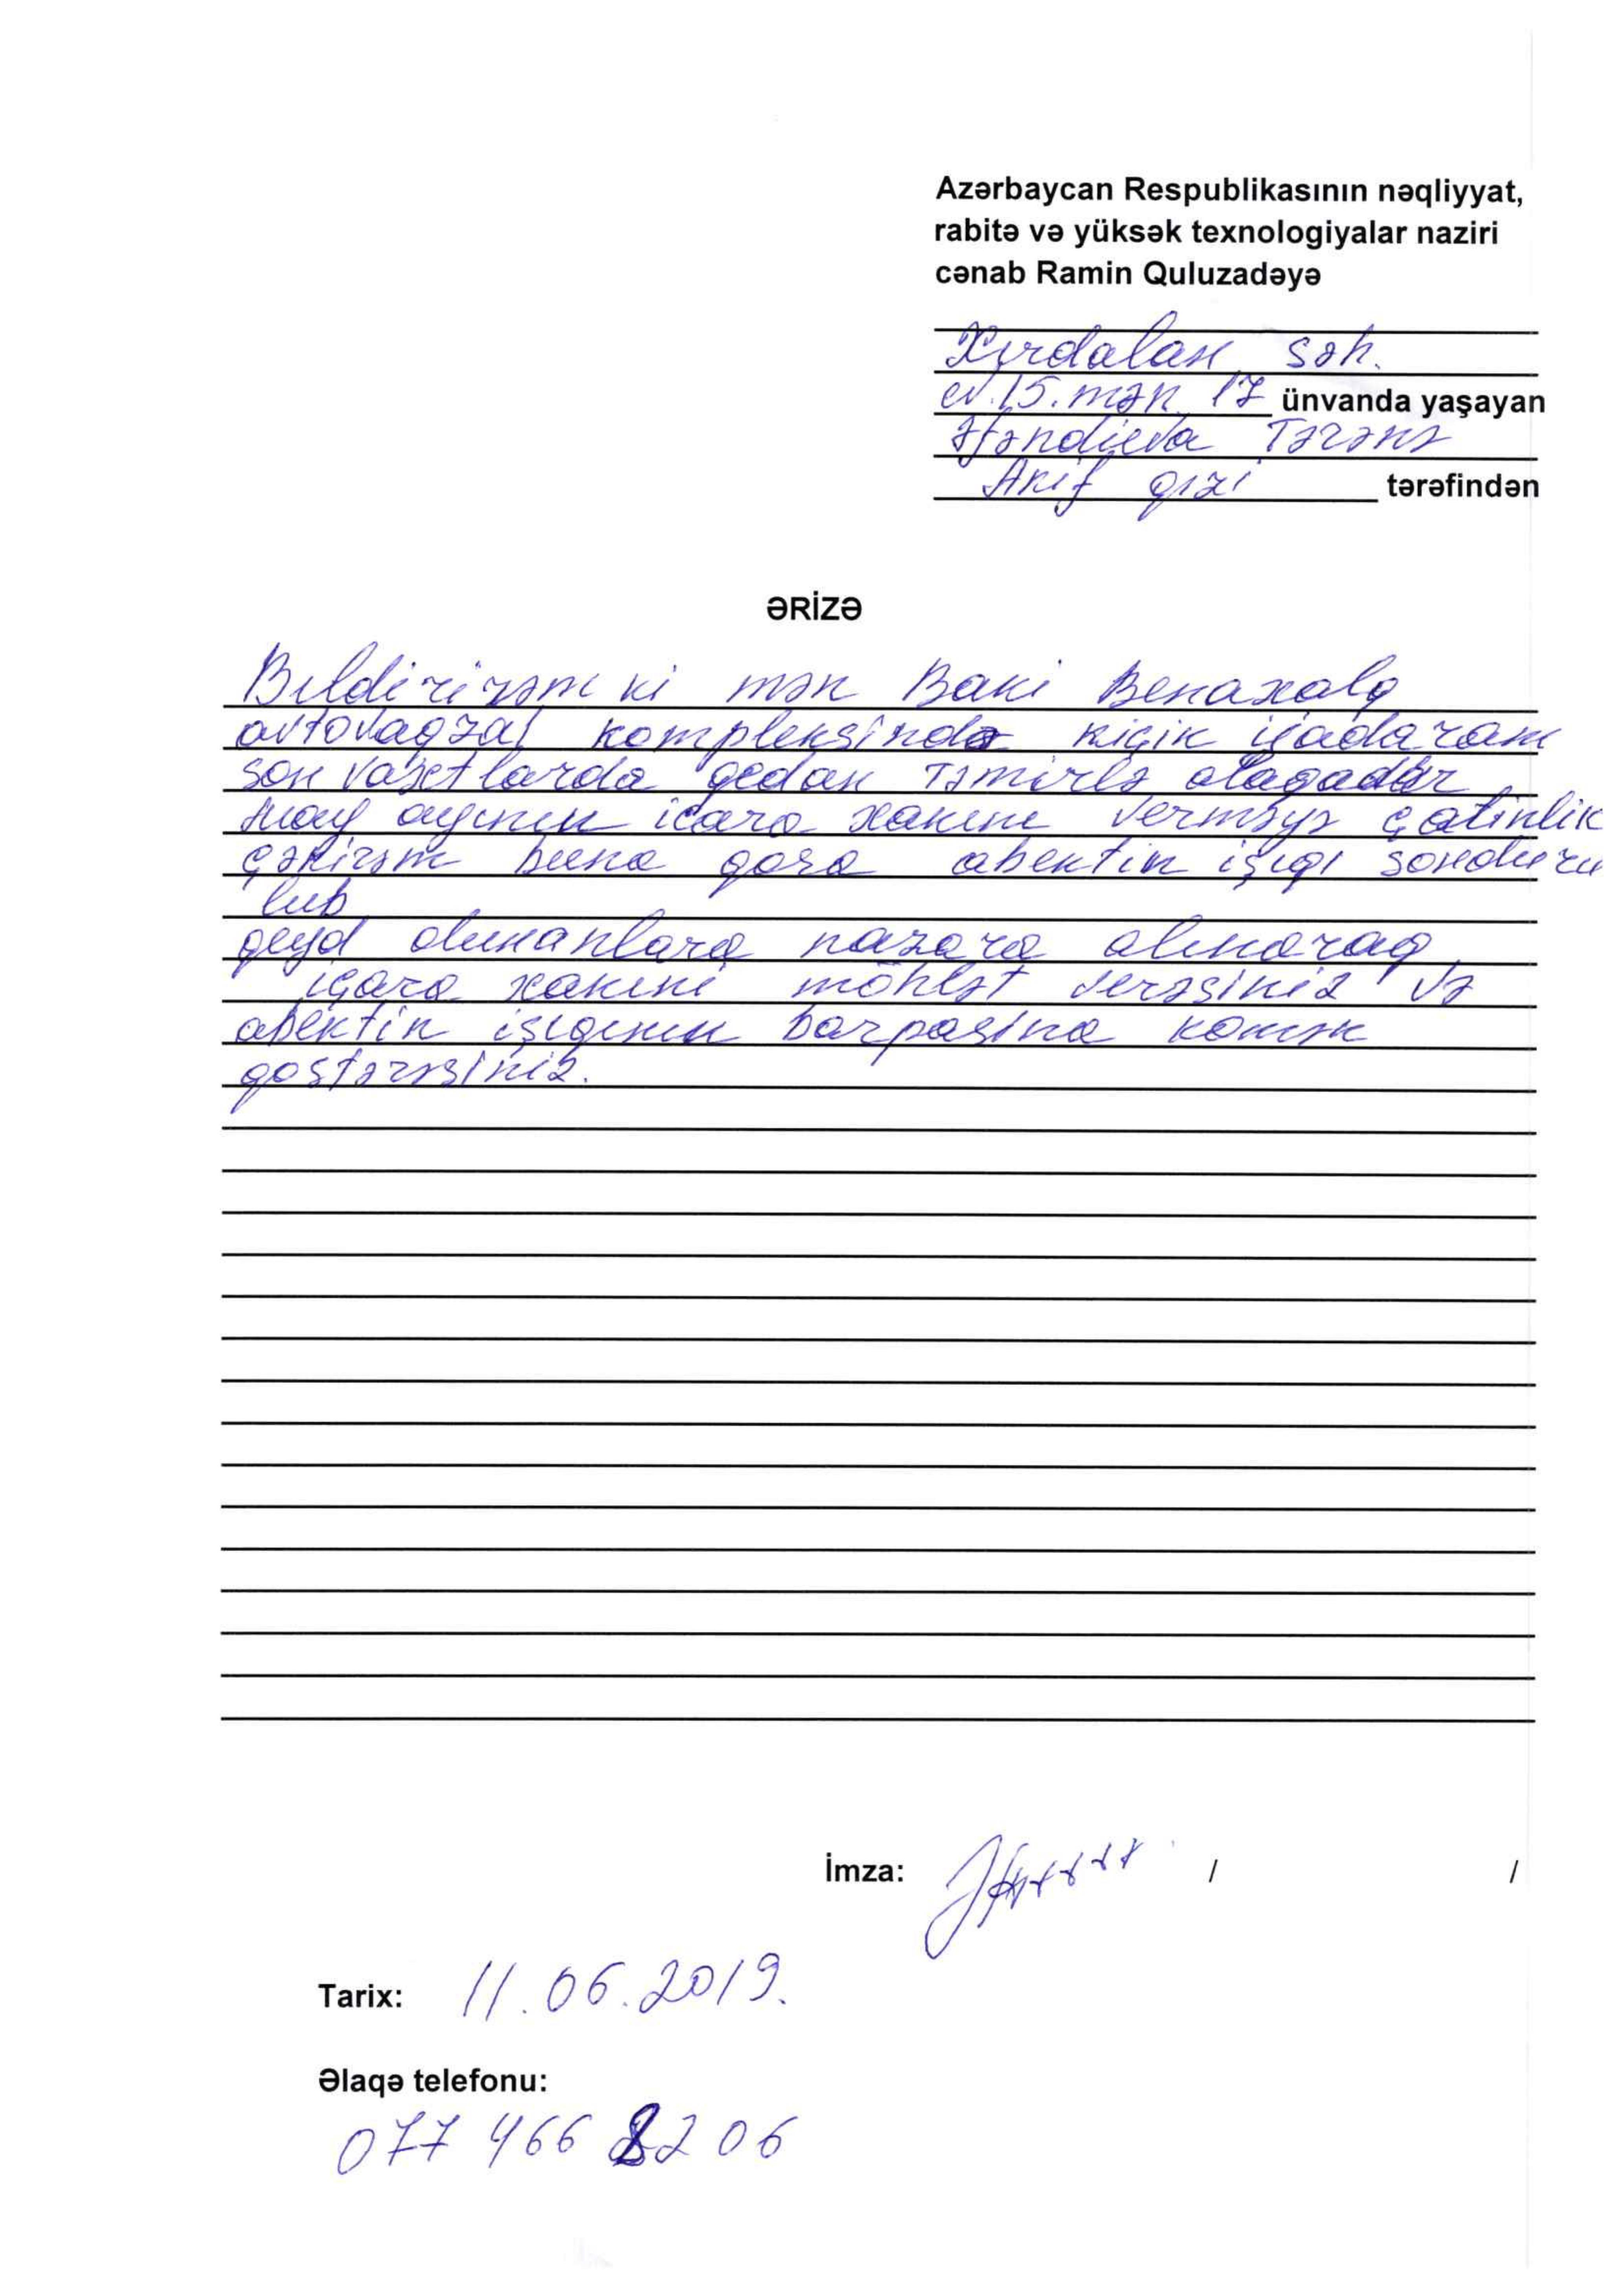 Azərbaycan Respublikasının nəqliyyat,
rabitə və yüksək texnologiyalar naziri
cənab Ramin Quluzadəyə
Xırdalan şəh.
ev.15. mən. 17 ünvanda yaşayan
Əfəndieva Təranə
Akif qızi tərəfindən
ƏRİZƏ
Bildirirəm ki mən Baki Benaxalq
avtovaqzal kompleksində kiçik icadaram
son vaxtlarda gedan təmirlə alagadar
may ayının icara xakını verməyə çatinlik
çəkirəm buna gora abektin işıgı sonduru
lub
qeyd olunanlara nazara alınaraq
içara xakıni möhlət verəsiniz və
abektin işıgının barpasina komək
gostərəsiniz.
İmza: / /
Tarix: 11.06.2019.
Əlaqə telefonu:
077 466 82 06